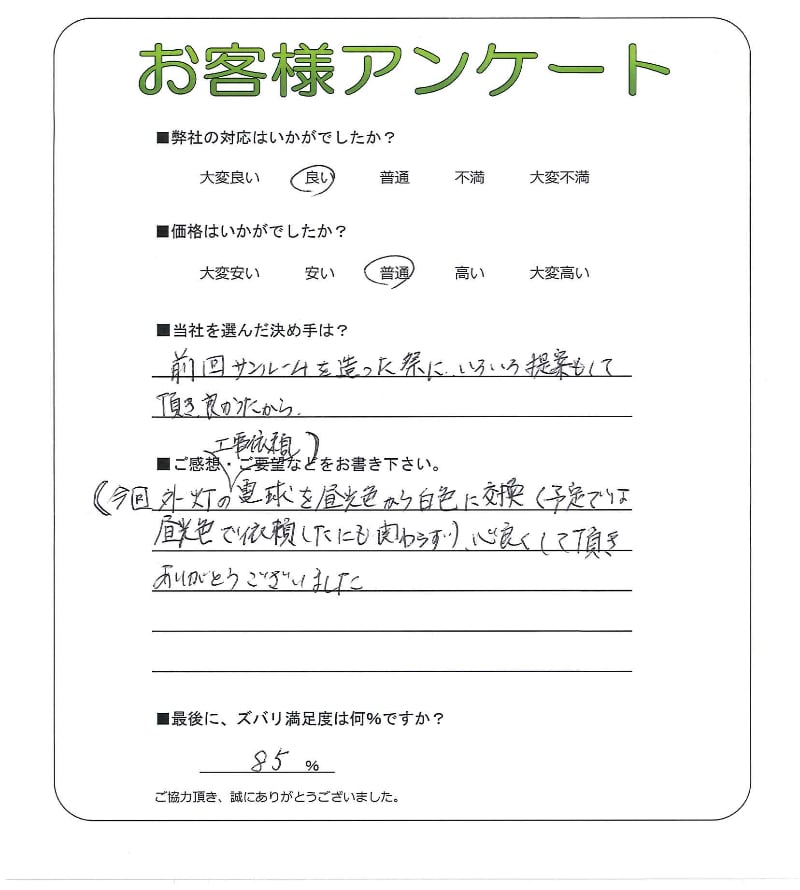 お客様アンケート
■弊社の対応はいかがでしたか?
大変良い 良い 普通 不満 大変不満
■価格はいかがでしたか?
大変安い 安い 普通 高い 大変高い
■当社を選んだ決め手は?
前回サンルームを造った祭に、いろいろ提案もして
頂き、良かったから、
工事依頼)
■ご感想・ご要望などをお書き下さい。
(今回外灯の電球を昼光色から白色に交換(予定では
昼光色で依頼したにも関わらず)、心良くして頂き
ありがとうございました
■最後に、ズバリ満足度は何%ですか?
85 %
ご協力頂き、誠にありがとうございました。